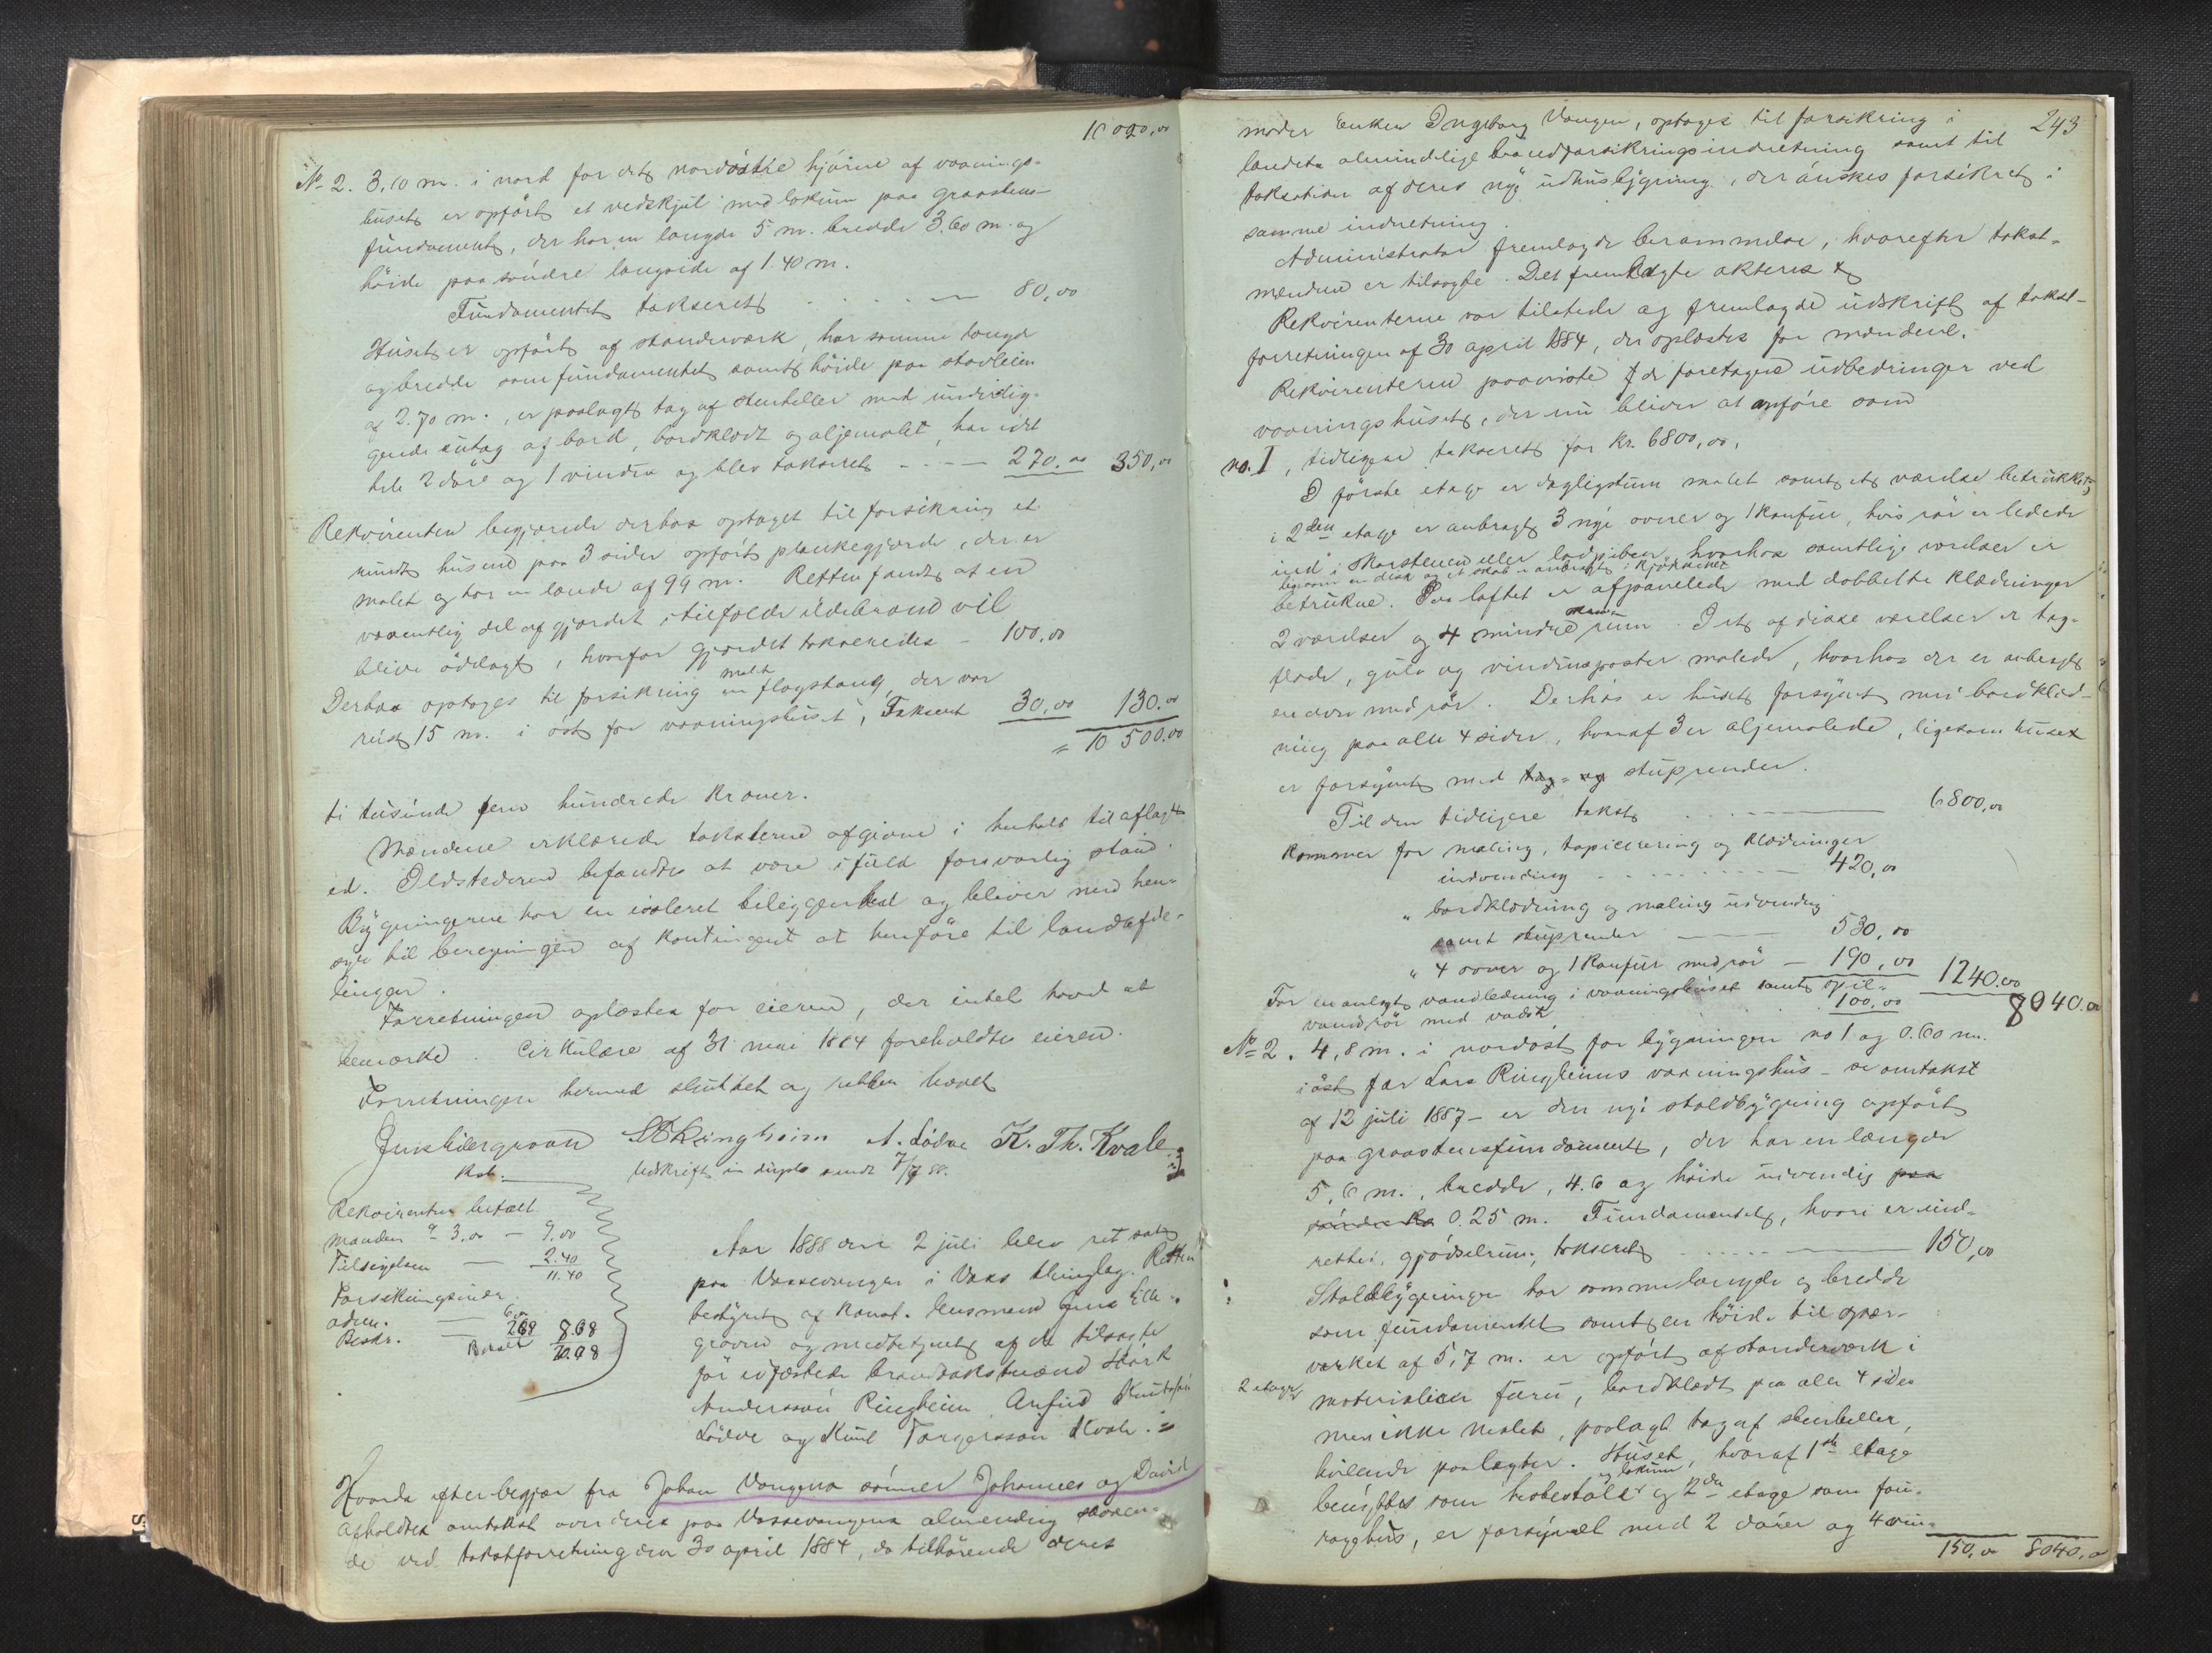 10 020,00
No 2. 3,10 m. i nord for dets nordøstre hjørne af vaanings-
huset er opført et vedskjul med lokum paa graastens-
fundament, der har en længde 5 m. bredde 3.60 m. og
høide paa søndre langside af 1.40 m.
Fundamentet takseret . . . . — 80,00
Huset er opført af standerværk, har samme længde
og bredde som fundamentet samt høide paa stavleien
af 2.70 m., er paalagt tag af stenheller med underlig-
gende sutag af bord, bordklædt og oljemalet, har idet
hele 2 døre og 1 vindu og blev takseret - - - 270.00 350,00
Rekvirenten begjærede derhos optaget til forsikring et
rundt husene paa 3 sider opført plankegjærde, der er
malet og har en længde af 99 m. Retten fandt at en
væsentlig del af gjærdet i tilfælde ildebrand vil
blive ødelagt, hvorfor gjærdet takseredes - 100,00
Derhos optages til forsikring en malt flagstang, der var
reist 15 m. i øst for vaaningshuset, Takseret 30,00 130.00
= 10 500.00
ti tusunde fem hundrede kroner.
Mændene erklærede taksterne afgivne i henhold til aflagt
ed. Ildstederne befandtes at være i fuld forsvarlig stand.
Bygningerne har en isoleret beliggenhed og bliver med hen-
syn til beregningen af kontingent at henføre til landafde-
lingen.
Forretningen oplæstes for eieren, der intet havde at
bemærke. Cirkulære af 31 mai 1884 foreholdtes eieren.
Forretningen hermed sluttet og retten hævet
Jens Ellergraven SA Ringheim A. Lødve K. Th. Kvale
Kst. Udskrift in duplo sendt 7/7 88.
Rekvirenten betalt
Mænden a 3,00 — 9,00
Tilsigelsen — 2.40
11.40
Forsikringsindr.
adm. — 6,00
Beskr. — 2.68 8.68
Betalt 20.08
Aar 1888 den 2 juli blev ret sat
paa Vossevangen i Voss thinglag. Retten
bestyret af konst. lensmand Jens Eller-
graven og medbetjent af de tilsagte
før edfæstede brandtakstmænd Størk
Andersson Ringheim Arfind Knutson
Lødve og Knut Torgersson Kvale. =
Hvorda efter begjær fra Johan Vangens sønner Johannes og David
afholdtes omtakst over deres paa Vossevangens almending staaen-
de ved takstforretning den 30 april 1884, da tilhørende deres
243
moder Enken Ingeborg Vangen, optages til forsikring i
landets almindelige brandforsikringsindretning samt til
taksation af deres nye udhusbygning, der ønskes forsikret i
samme indretning.
Administrator fremlagde berammelse, hvorefter takst-
mændene er tilsagte. Det fremlagte akteres
Rekvirenterne var tilstede og fremlagde udskrift af takst-
forretningen af 30 april 1884, der oplæstes for mændene.
Rekvirenterne paaviste de foretagne udbedringer ved
vaaningshuset, der nu bliver at anføre som
no. I, tidligere takseret for kr. 6800,00.
I første etage er dagligstuen malet samt et værelse betrukket,
i 2den etage er anbragt 3 nye ovner og 1 komfur, hvis rør er ledede
ind i skorstenen eller lodpiben, hvorhos samtlige værelser er
ligesom en disk og et skab er anbragt i kjøkkenet
betrukne. Paa loftet er afpanelede med dobbelte klædninger
2 værelser og 4 mindre rum. I et af disse værelser er tag-
flade, gulv og vinduesposter malede, hvorhos der er anbragt
en ovn med rør. Derhos er huset forsynet med bordklæd-
ning paa alle 4 sider, hvoraf 3 er oljemalede, ligesom huset
er forsynet med tag- og stuprender.
Til den tidligere takst . . . — 6800,00
kommer for maling, tapicering og klædninger
indvendig - - - - - - 420,00
" bordklædning og maling udvendig
samt stuprender — 530,00
" 4 ovner og 1 komfur med rør — 190,00 1240.00
For en anlagt vandledning i vaaningshuset samt spil-
vandsrør med vask 100,00 8040.00
No 2. 4,8 m. i nordøst for bygningen no 1 og 0.60 m.
i øst for Lars Ringheims vaaningshus - se omtakst
af 12 juli 1887 - er den nye staldbygning opført
paa graastensfundament, der har en længde
5,6 m., bredde, 4.6 og høide udvendig paa
søndre 0.25 m. Fundamentet, hvori er ind-
rettet gjødselrum, takseret . . . . — 150,00
Staldbygningen har samme længde og bredde
som fundamentet samt en høide til spær-
værket af 5,7 m. er opført af standerværk i
2 etager, materialier furu, bordklædt paa alle 4 sider
men ikke malet, paalagt tag af stenheller,
hvilende paa lægter. Huset, hvoraf 1ste etage
benyttes som hestestald og lokum og 2den etage som fou-
ragehus, er forsynet med 2 dører og 4 vin-
150,00 8040,00